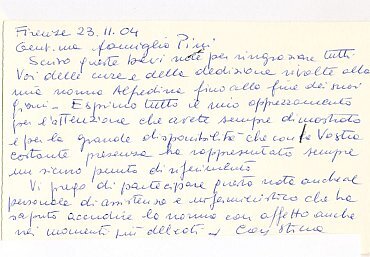 Firenze 23.11.04
Gent.ma famiglia Pini
Scrivo queste brevi note per ringraziare tutti
Voi delle cure e della dedizione rivolte alla
mia nonna Alfedina fino alla fine dei suoi
giorni - Esprimo tutto il mio apprezzamento
per l'attenzione che avete sempre dimostrato
e per la grande disponibilità che con la Vostra
costante presenza ha rappresentato sempre
un sicuro punto di riferimento
Vi prego di partecipare queste note anche al
personale di assistenza e infermieristico che ha
saputo accudire la nonna con affetto anche
nei momenti più delicati - Cristina